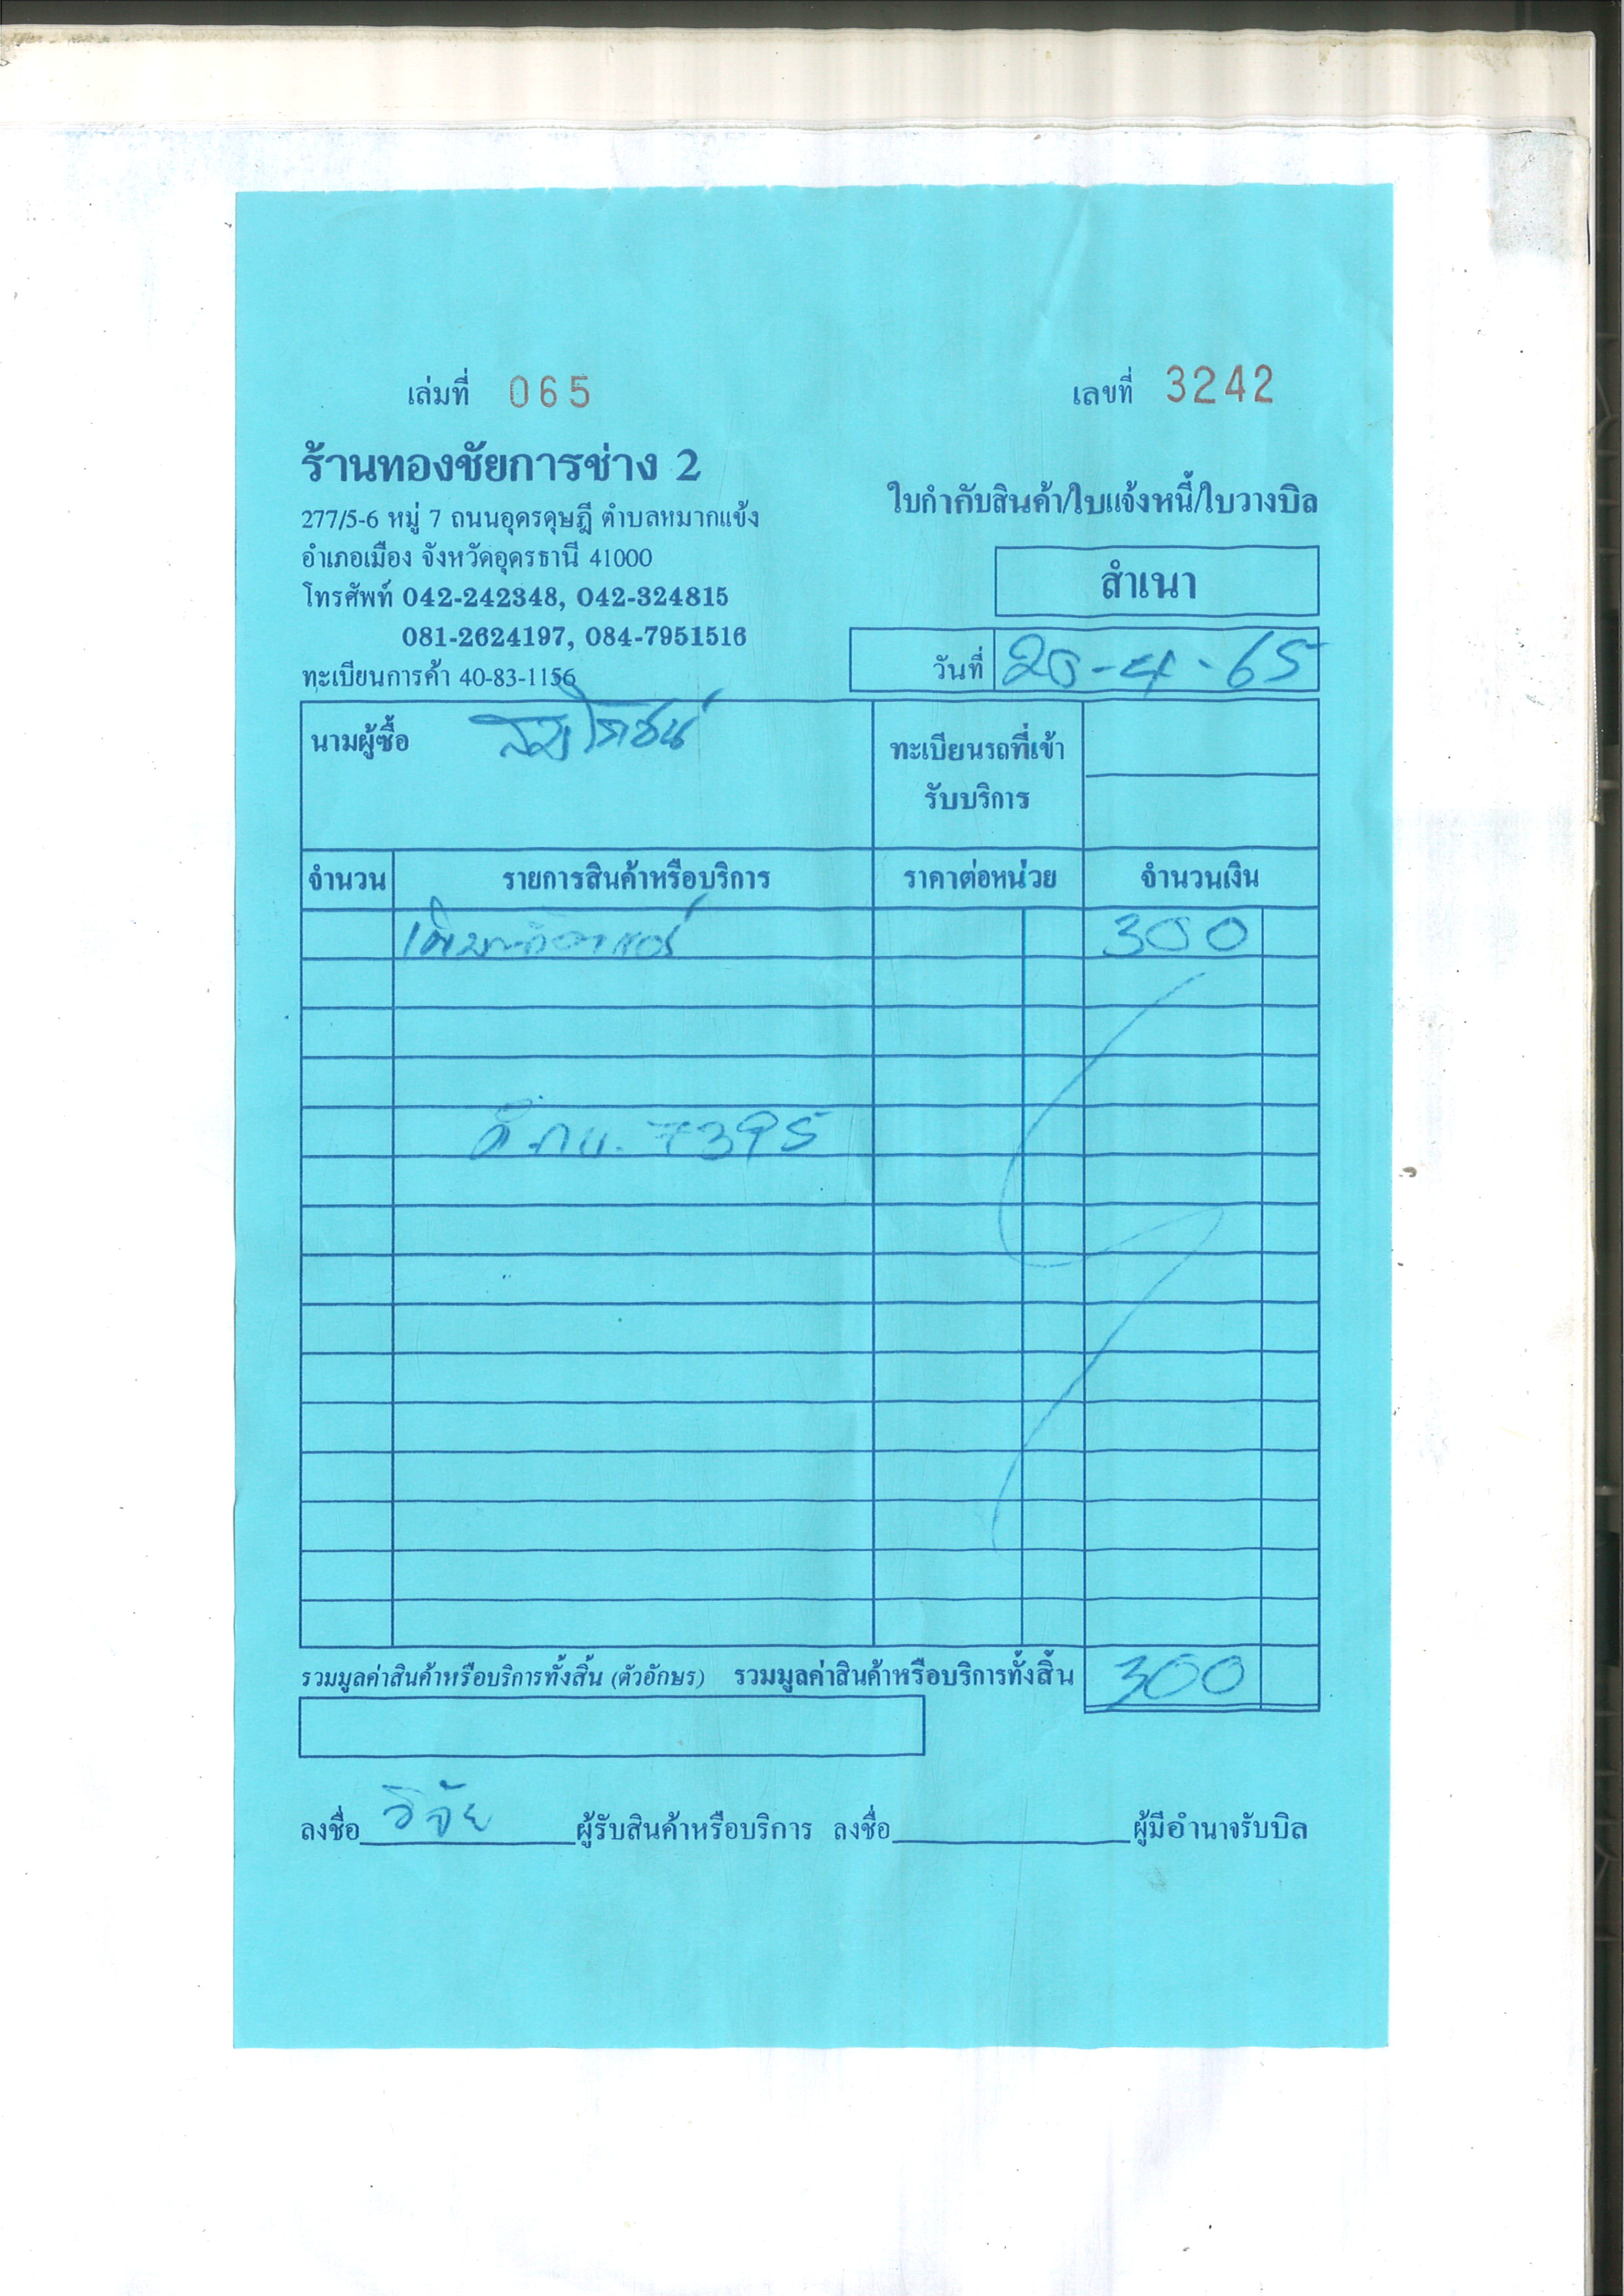 เล่มที่ 065 เลขที่ 3242
ร้านทองชัยการช่าง 2
277/5-6 หมู่ 7 ถนนอุดรดุษฎี ตำบลหมากแข้ง
อำเภอเมือง จังหวัดอุดรธานี 41000
โทรศัพท์ 042-242348, 042-324815
081-2624197, 084-7951516
ทะเบียนการค้า 40-83-1156
ใบกำกับสินค้า/ใบแจ้งหนี้/ใบวางบิล
สำเนา
วันที่ 20-4-65
นามผู้ซื้อ
ทะเบียนรถที่เข้า
รับบริการ
จำนวน รายการสินค้าหรือบริการ ราคาต่อหน่วย จำนวนเงิน
300
7395
รวมมูลค่าสินค้าหรือบริการทั้งสิ้น (ตัวอักษร) รวมมูลค่าสินค้าหรือบริการทั้งสิ้น 300
ลงชื่อ วิจัย ผู้รับสินค้าหรือบริการ ลงชื่อ ผู้มีอำนาจรับบิล